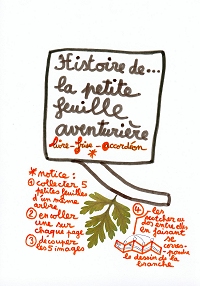 Histoire de...
la petite
feuille
aventurière
livre-frise-accordéon
*
* notice :
① collecter 5
petites feuilles
d'un même
arbre
② en coller
une sur
chaque page
③ découper
les 5 images
④ les
scotcher au
dos entre elles
en faisant
se
corres-
pondre
le dessin de la
branche